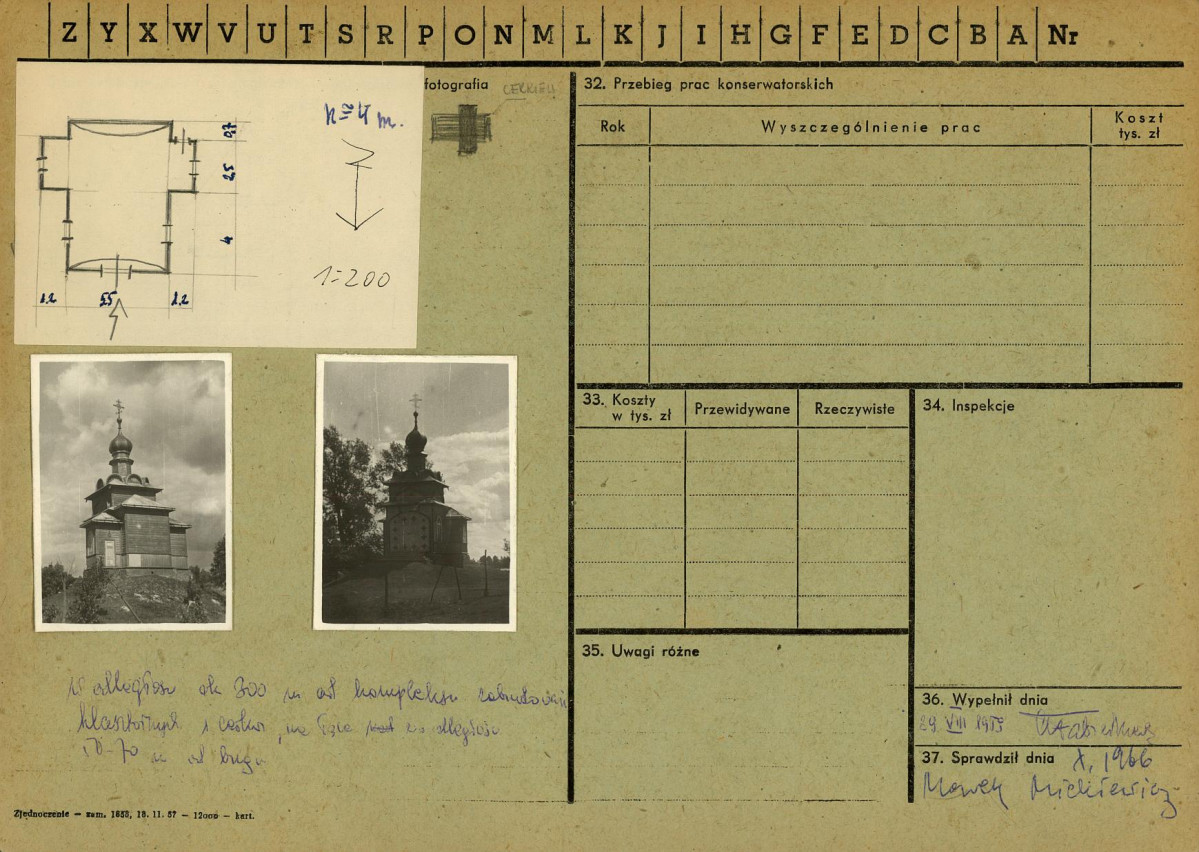 Z Y X W V U T S R P O N M L K J I H G F E D C B A Nr
fotografia
CERKIEW
h = 4 m.
0,7
2,5
4
1:200
1.2 5.5 1.2
32. Przebieg prac konserwatorskich
Rok
Wyszczególnienie prac
Koszt
tys. zł
33. Koszty
w tys. zł
Przewidywane
Rzeczywiste
34. Inspekcje
35. Uwagi różne
W odległości ok 300 m od kompleksu zabudowań
klasztornych i cerkwi, na
m od Bugu
36. Wypełnił dnia
29 VIII 1959
37. Sprawdził dnia X, 1966
Marek Mickiewicz
Zjednoczenie — zam. 1653, 18. 11. 57 — 12000 — kart.